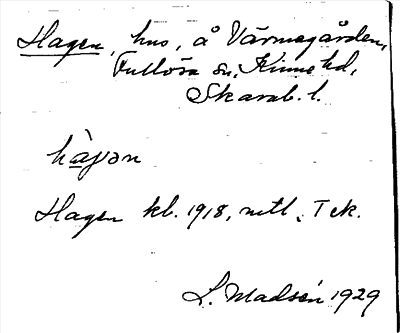 Hagen, hus, å Värmegården,
Fullösa sn, Kinne hd,
Skarab. l.
hàgən
Hagen kb. 1918, mtl, Tek.
L. Madsén 1929